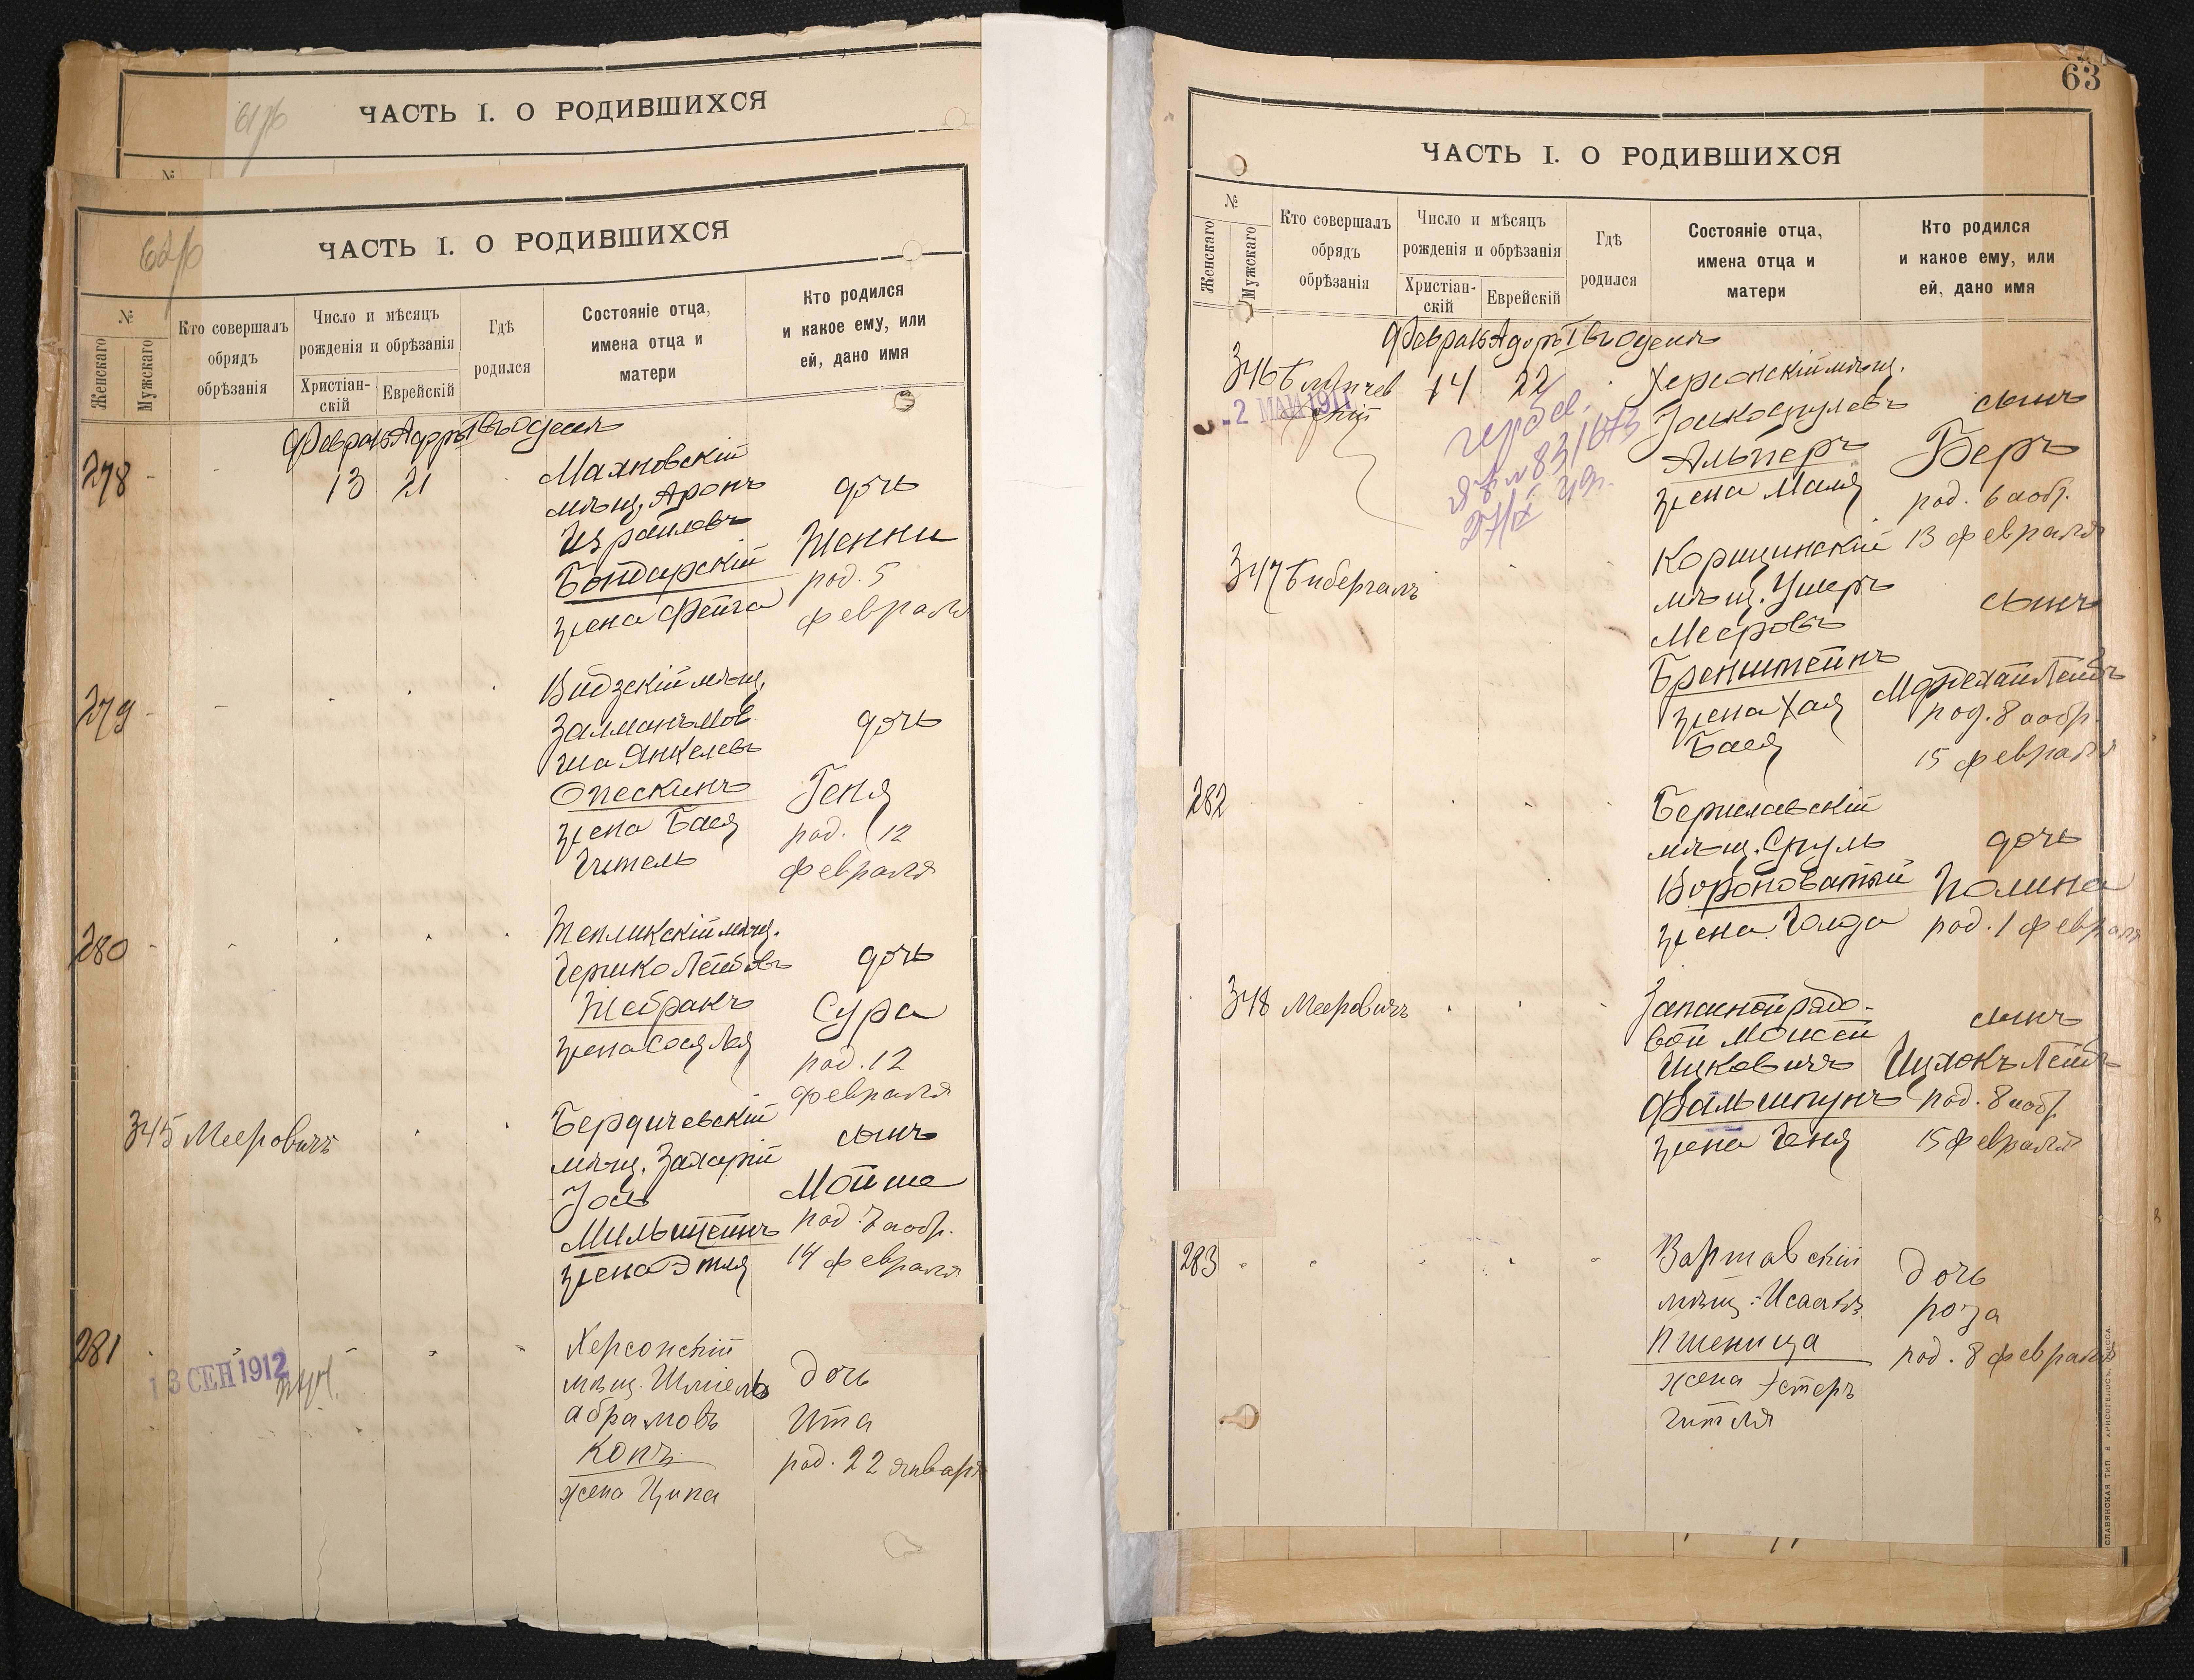 61 об
ЧАСТЬ I. О РОДИВШИХСЯ
№
62 об
ЧАСТЬ I. О РОДИВШИХСЯ
№
Женскаго
Мужскаго
Кто совершалъ
обрядъ
обрѣзанія
Число и мѣсяцъ
рожденія и обрѣзанія
Христіан-
скій
Еврейскій
Гдѣ
родился
Состояніе отца,
имена отца и
матери
Кто родился
и какое ему, или
ей, дано имя
Февраль Адаръ I въ Одессѣ
278
13 21
Маяновскій
мѣщ. Аронъ
Израилевъ
Бондарскій
жена Фейга
дочь
Женни
род. 5
февраля
279
Видзскій мѣщ.
Залманъ Мов-
ша Янкелевъ
Опескинъ
жена Бася
Гитель
дочь
Геня
род. 12
февраля
280
Тепликскій мѣщ.
Гершко Лейбовъ
Жебракъ
жена Сося Лея
дочь
Сура
род. 12
февраля
345 Мееровичъ
Бердичевскій
мѣщ. Захарій
Іось
Мильштейнъ
жена Этля
сынъ
Мойше
род. 7 а обр.
14 февраля
281
13 СЕН 1912
Херсонскій
мѣщ. Шмиель
Абрамовъ
Копъ
жена Ципа
дочь
Ита
род. 22 января
63
ЧАСТЬ I. О РОДИВШИХСЯ
№
Женскаго
Мужскаго
Кто совершалъ
обрядъ
обрѣзанія
Число и мѣсяцъ
рожденія и обрѣзанія
Христіан-
скій
Еврейскій
Гдѣ
родился
Состояніе отца,
имена отца и
матери
Кто родился
и какое ему, или
ей, дано имя
Февраль Адаръ I въ Одессѣ
346
14 22
-2 МАЯ 1911
Херсонскій мѣщ.
Іошко Срулевъ
Альперъ
жена Маля
сынъ
Беръ
род. 6 а обр.
13 февраля
347 Бибергалъ
Корицинскій
мѣщ. Ушеръ
Мееровъ
Бренштейнъ
жена Хая
Бася
сынъ
Мордехай Лейбъ
род. 8 а обр.
15 февраля
282
Бериславскій
мѣщ. Сруль
Вороноватый
жена Голда
дочь
Полина
род. 1 февраля
348 Мееровичъ
Запасной рядо-
вой Моисей
Ицковичъ
Фальшпунъ
жена Геня
сынъ
Ицхокъ Лейбъ
род. 8 а обр.
15 февраля
283
Варшавскій
мѣщ. Исаакъ
Пшеница
жена Эстеръ
Гитля
дочь
роза
род. 8 февраля